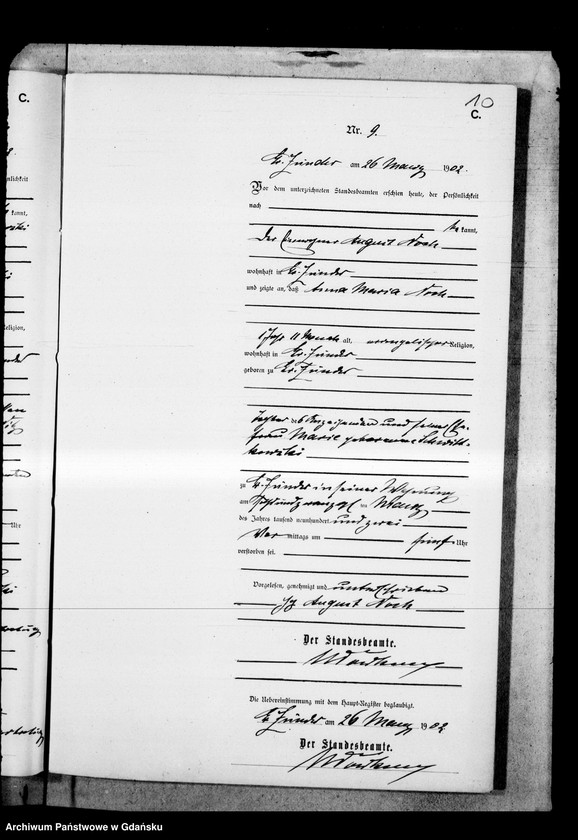 10
C.
C.
Nr. 9.
Gr. Zünder am 26 März 1902.
Vor dem unterzeichneten Standesbeamten erschien heute, der Persönlichkeit
nach
be kannt,
der Einwohner August Noch
wohnhaft in Gr. Zünder
und zeigte an, daß Anna Maria Noch
1 Jahr 11 Monate alt, evangelischer Religion,
wohnhaft in Gr. Zünder
geboren zu Gr. Zünder
Tochter des Anzeigenden und seiner Ehe-
frau Marie geborenen
zu Gr. Zünder in seiner Wohnung
am sechsundzwanzigsten März
des Jahres tausend neunhundert und zwei
Vor mittags um fünf Uhr
verstorben sei.
Vorgelesen, genehmigt und unterschrieben
gez August Noch
Der Standesbeamte.
Die Uebereinstimmung mit dem Haupt-Register beglaubigt.
Gr. Zünder am 26 März 1902
Der Standesbeamte.
Archiwum Państwowe w Gdańsku